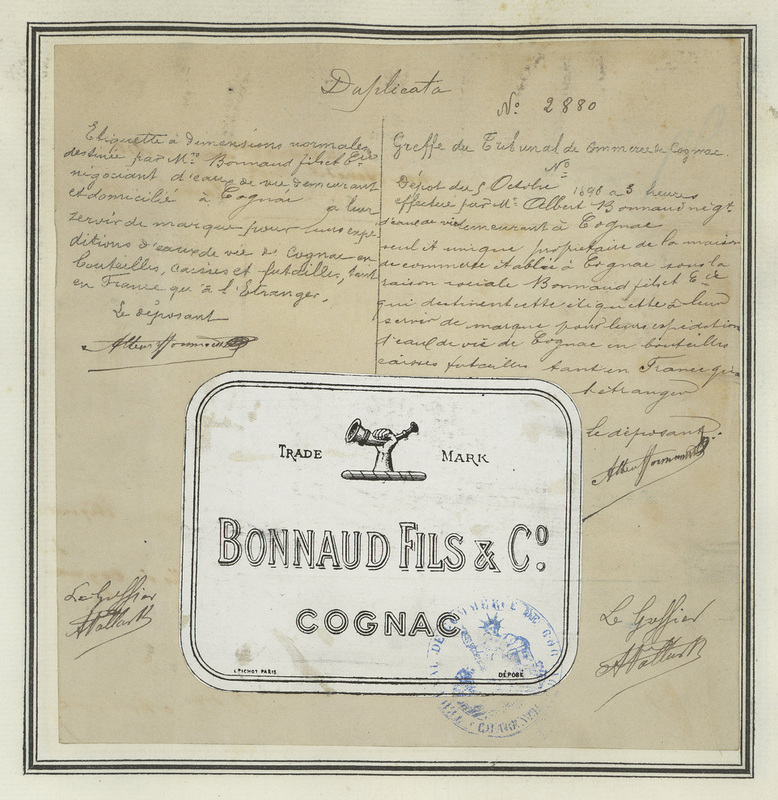 Duplicata
Nº 2880
Etiquette à dimensions normales
destinée par Mr. Bonnaud fils et Cie
négociant d'eaux de vie demeurant
et domicilié à Cognac à leur
servir de marque pour leurs expé
ditions d'eaux de vie de Cognac en
bouteilles, caisses et futailles, tant
en France qu'à l'Etranger.
Le déposant
Greffe du Tribunal de Commerce de Cognac.
Nº
Dépot du 5 Octobre 1898 a 3 heures
effectué par Mr. Albert Bonnaud négt.
d'eaux de vie demeurant à Cognac
seul et unique propriétaire de la maison
de commerce établie à Cognac sous la
raison sociale Bonnaud fils et Cie
qui destinent cette étiquette à leur
servir de marque pour leurs expéditions
d'eaux de vie de Cognac en bouteilles
caisses futailles tant en France qu'a
l'étranger
le déposant.
TRADE MARK
BONNAUD FILS & Cº.
COGNAC
L. PICHOT PARIS
DÉPOSÉ
Le Greffier
Le Greffier
COMMERCE DE COGNAC